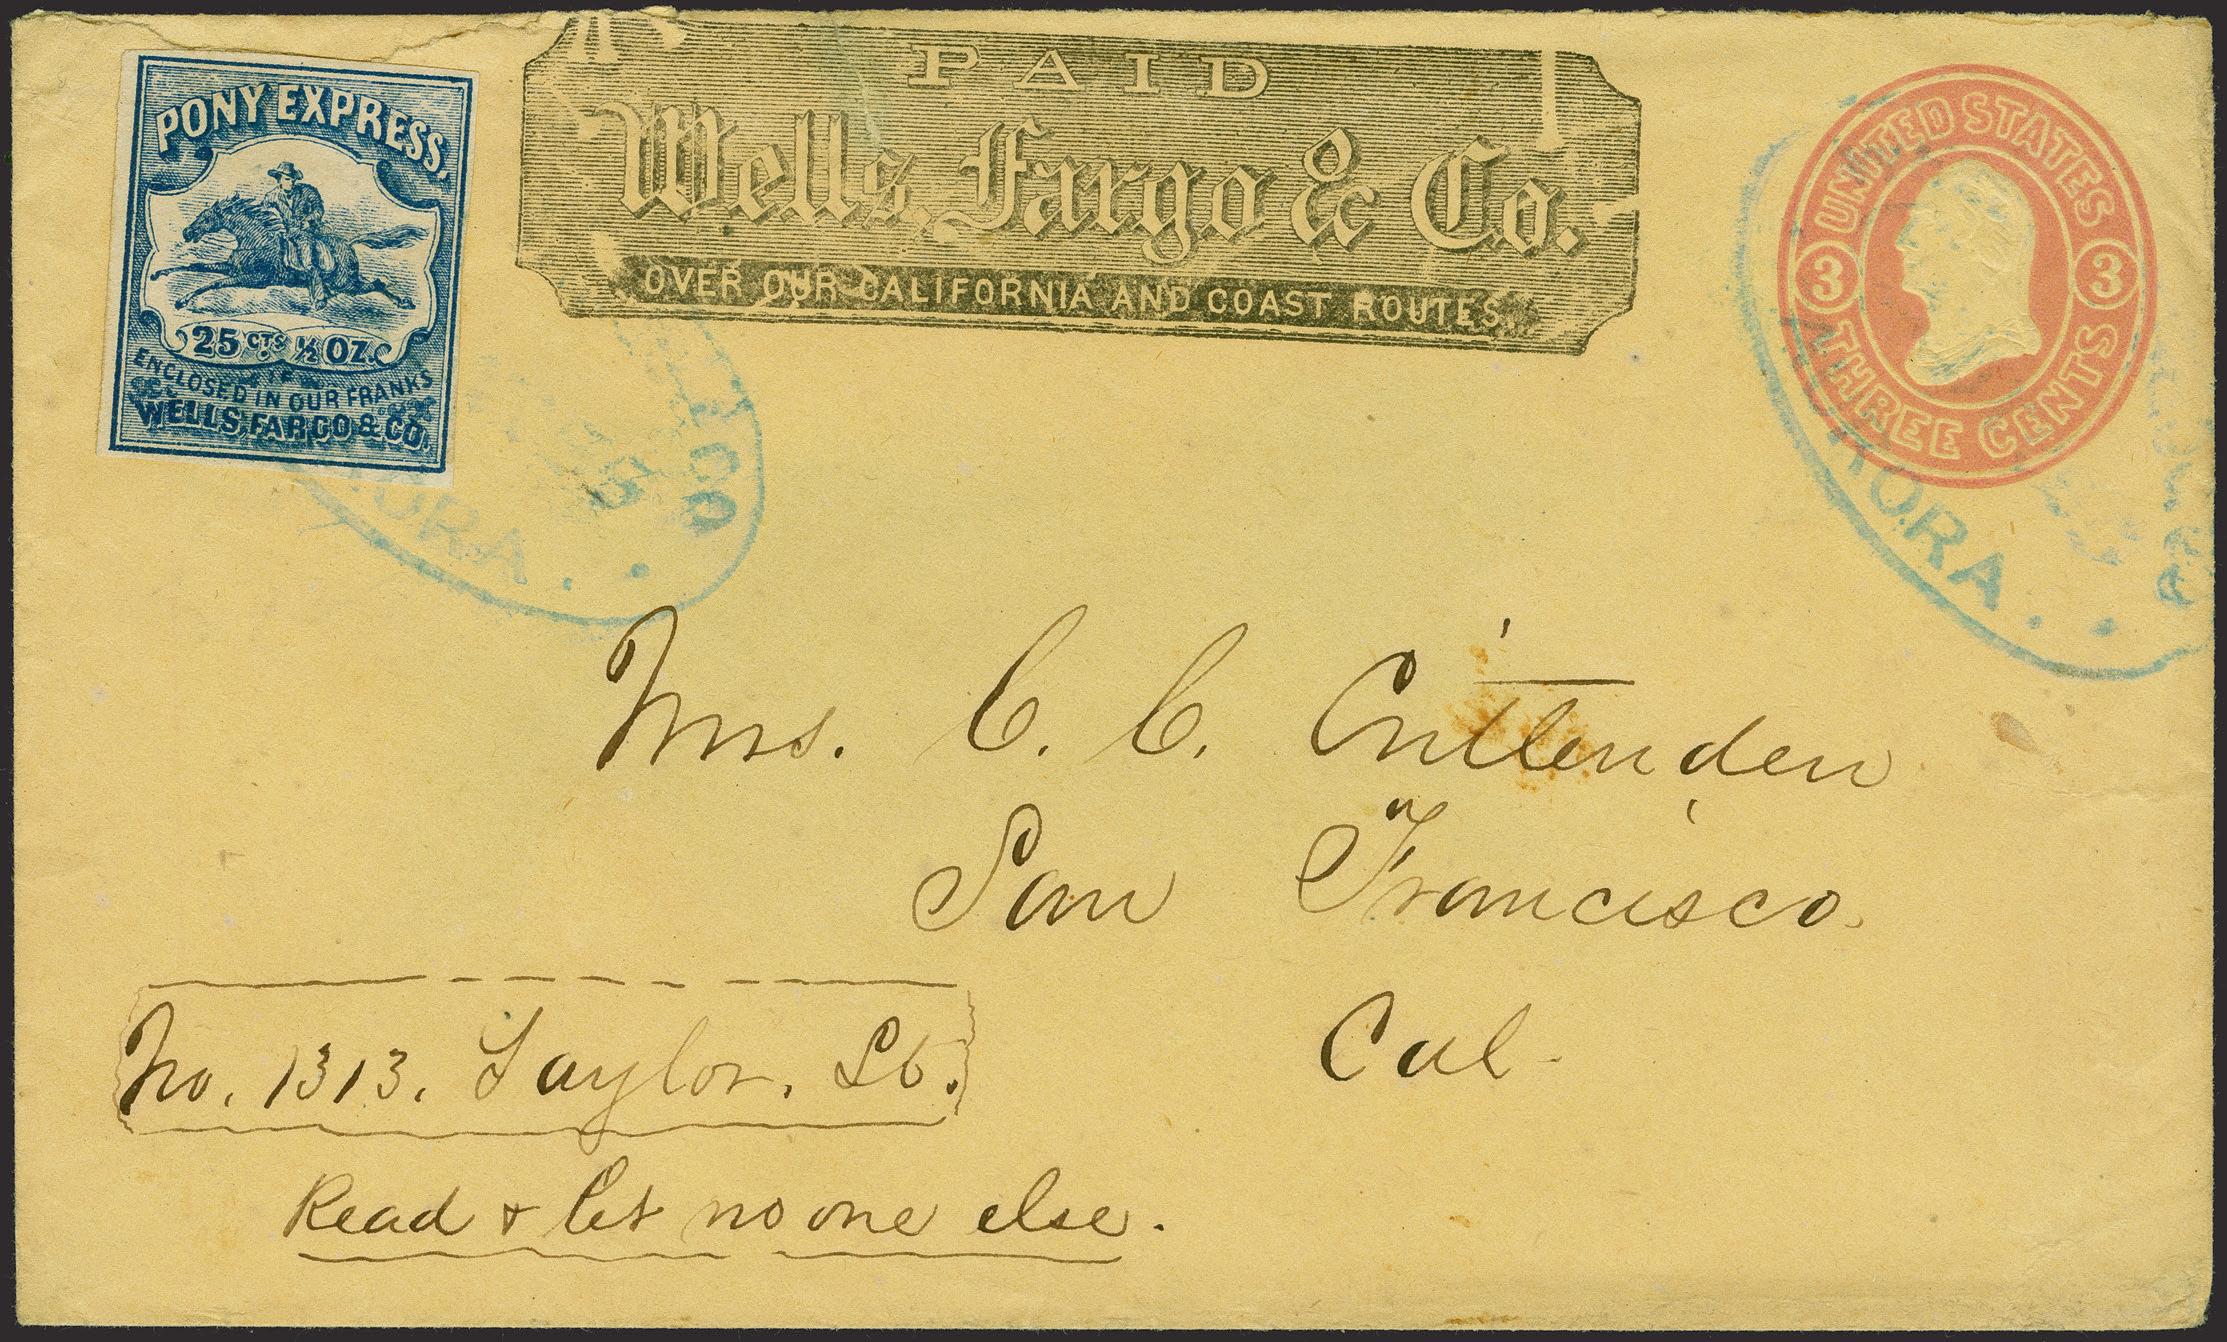 PONY EXPRESS.
25 CTS. ½ OZ.
ENCLOSED IN OUR FRANKS
WELLS, FARGO & CO.
PAID
Wells, Fargo & Co.
OVER OUR CALIFORNIA AND COAST ROUTES.
UNITED STATES
3 3
THREE CENTS
& CO
ORA.
AURORA.
Mrs. C. C. Crittenden
San Francisco.
Cal.
No. 1313. Taylor. St.
Read & let no one else.